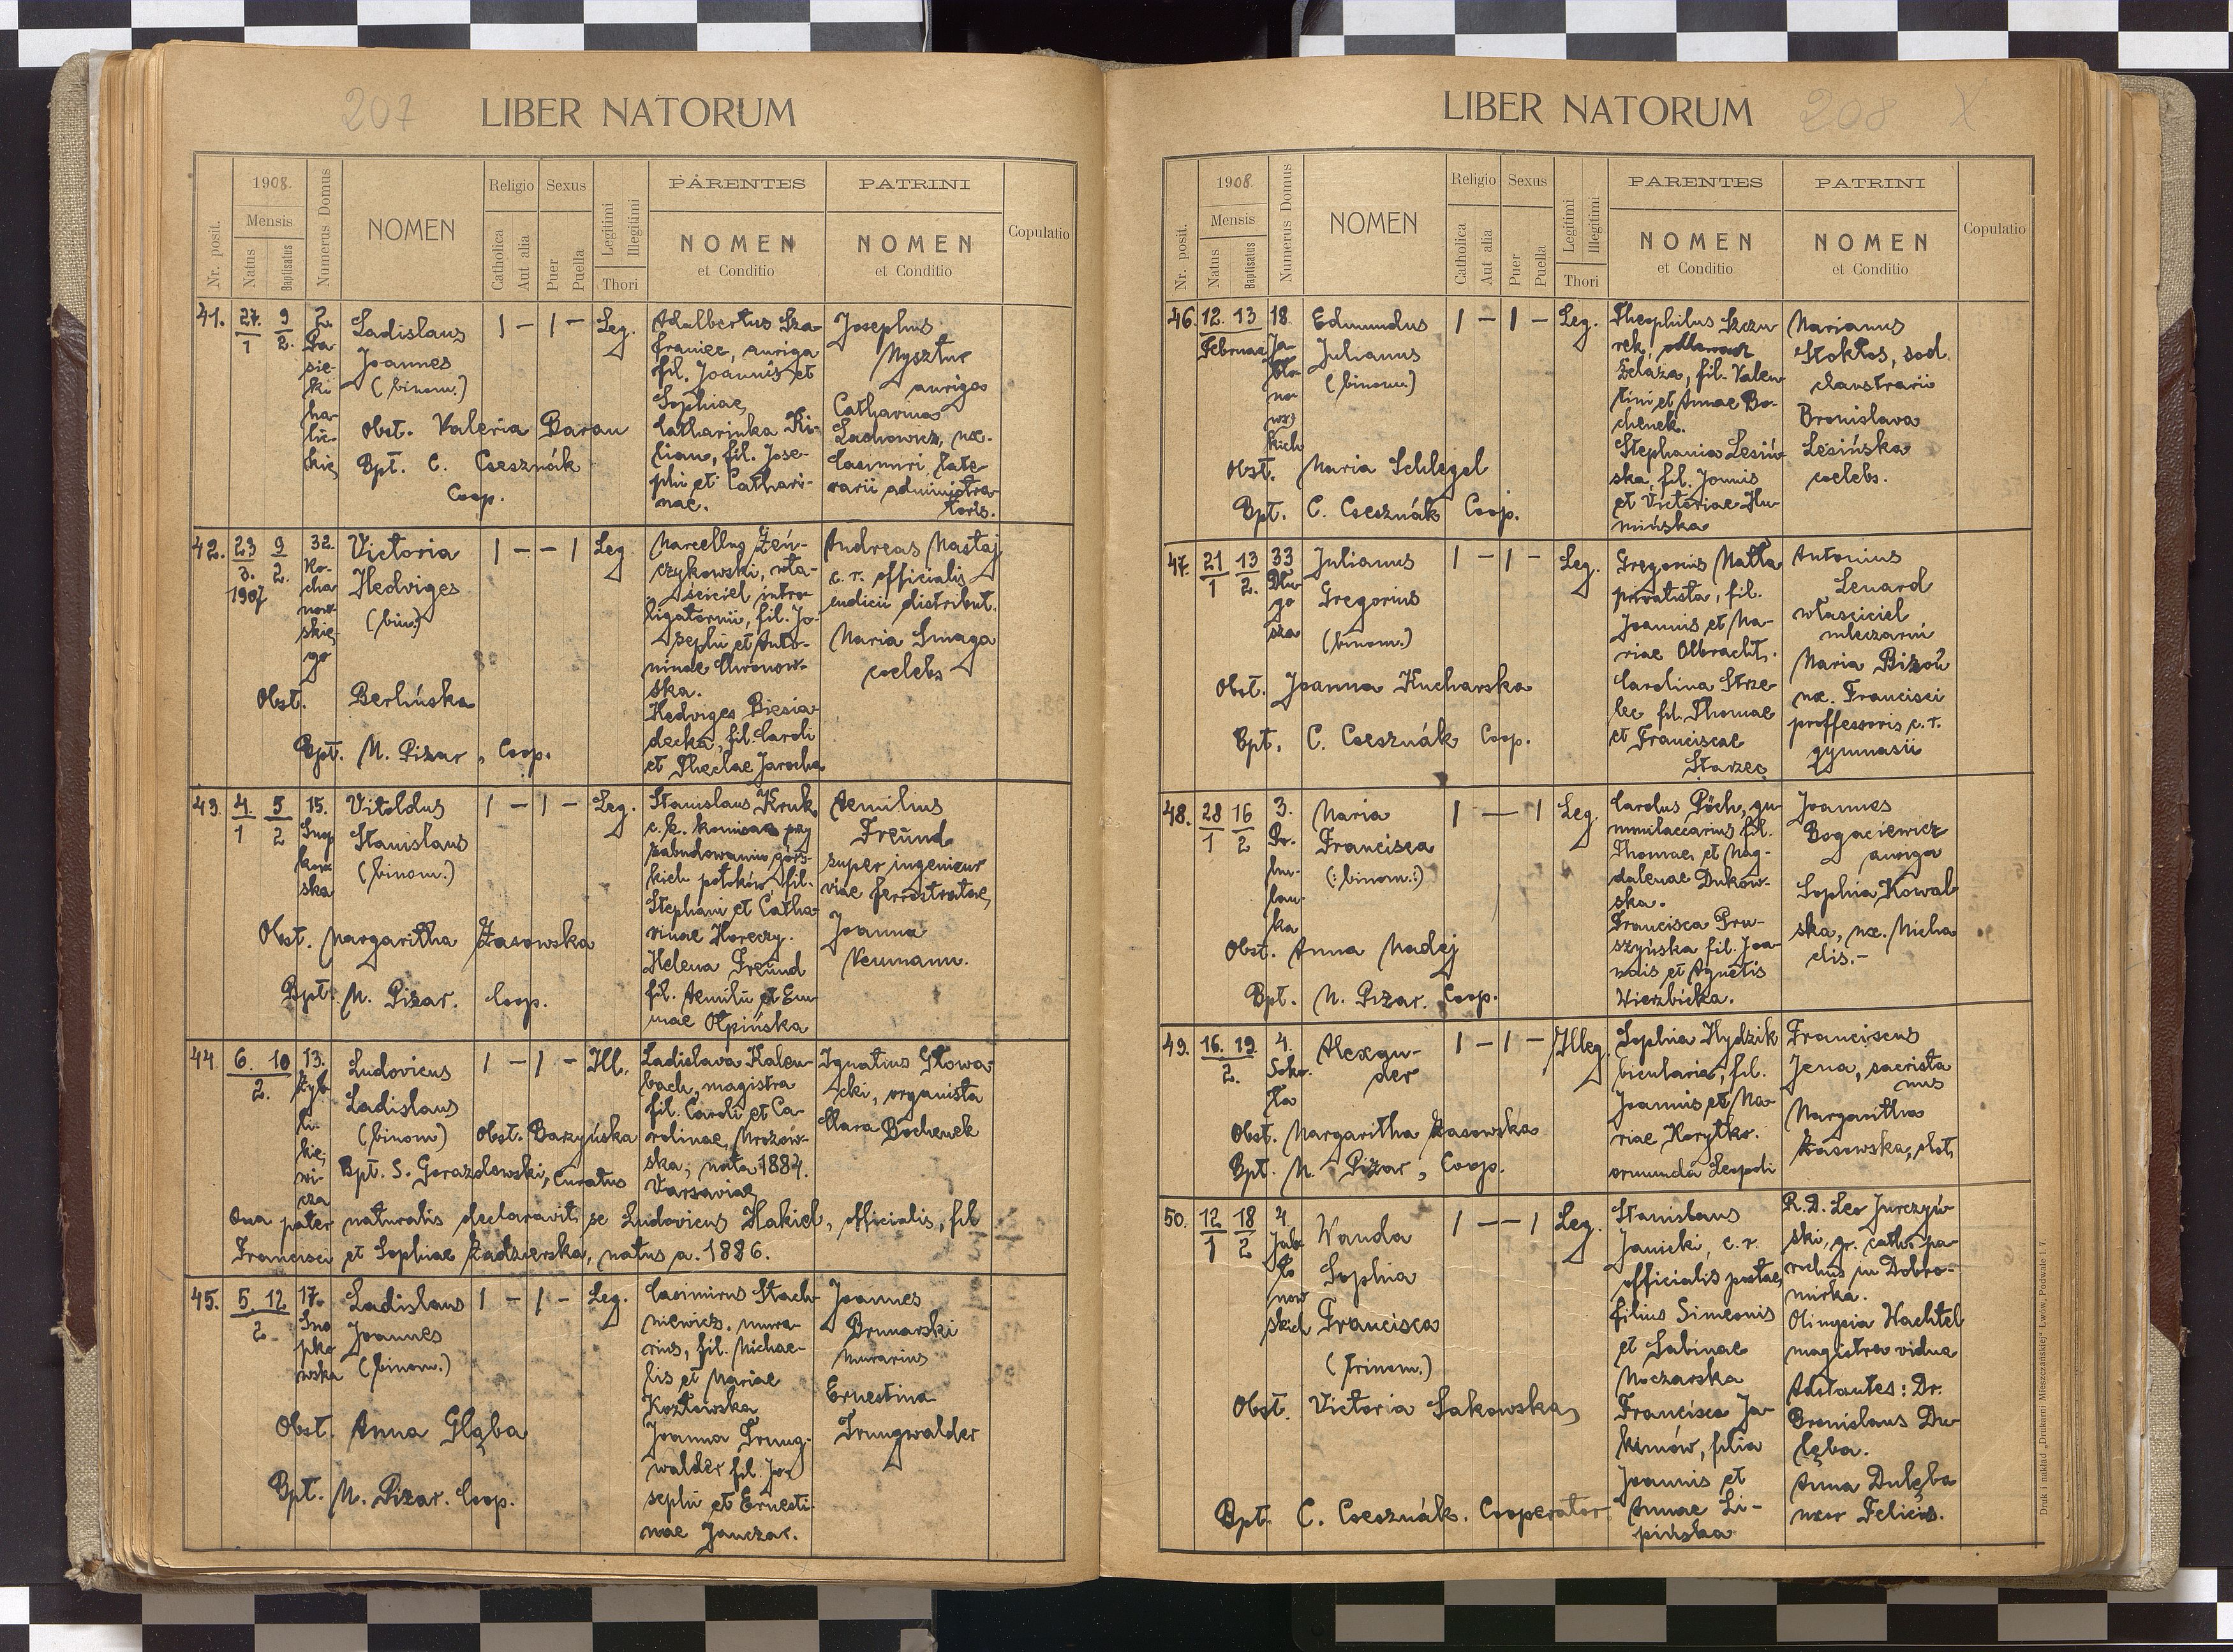 207
LIBER NATORUM
Nr. posit.
1908.
Mensis
Natus
Baptisatus
Numerus Domus
NOMEN
Religio
Catholica
Aut alia
Sexus
Puer
Puella
Legitimi
Illegitimi
Thori
PARENTES
NOMEN
et Conditio
PATRINI
NOMEN
et Conditio
Copulatio
41.
27.
1
9
2.
2.
Pa
sie-
ki
ha-
lic-
kie
Ladislaus
Joannes
(binom.)
1 - 1 -
Leg.
Obst. Valeria Baran
Bpt. C. Csesznák
Coop.
Adalbertus Sza-
franiec, auriga
fil. Joannis et
Sophiae,
Catharinka Ki-
lian, fil. Jose-
phi et Cathari-
nae.
Josephus
Mysztur
auriga
Catharina
Lachowicz, ux.
Casimiri, late-
rarii administra-
toris.
42.
23
3.
1907
9
2.
32.
Ko-
cha
now
skie-
go
Victoria
Hedviges
(bin.)
1 - - 1
Leg
Obst. Berlińska
Bpt. M. Pizar, Coop.
Marcellus Żeń-
czykowski, wła-
ściciel intro-
ligatornii, fil. Jo-
sephi et Anto-
ninae Chronow-
ska.
Hedviges Biesia-
decka, fil. Caroli
et Theclae Jarocha
Andreas Nastaj
c. r. officialis
iudicii distribut.
Maria Smaga
coelebs
43.
4
1
5
2
15.
Snop
kow
ska
Vitoldus
Stanislaus
(binom.)
1 - 1 -
Leg.
Obst. Margaritha Żasowska
Bpt. M. Pizar. Coop.
Stanislaus Kruk
c. k. komisarz przy
zabudowaniu górs-
kich potoków, fil.
Stephani et Catha-
rinae Horeczy.
Helena Freünd
fil. Aemilii et Em-
mae Olpińska
Aemilius
Freünd
super ingenieur
viae ferrostratae,
Joanna
Neumann.
44
6. 10
2.
13.
Zyb-
li-
kie
wi-
cza
Ludovicus
Ladislaus
(binom)
1 - 1 -
Ill.
Obst. Bazyńska
Bpt. S. Gorazdowski, Curatus
Ladislava Kalen-
bach, magistra
fil. Caroli et Ca-
rolinae, Mrozow-
ska, nata 1884.
Varsaviae
Ignatius Głowa-
cki, organista
Clara Bochenek
Qua pater naturalis declaravit se Ludovicus Hakiel, officialis, fil
Francisci et Sophiae Zadzierska, natus a. 1886.
45.
5. 12
2
17.
Sno
pko
wska
Ladislaus
Joannes
(binom.)
1 - 1 -
Leg.
Obst. Anna Głąba
Bpt. M. Pizar. Coop.
Casimirus Stach-
niewicz, mura-
rius, fil. Michae-
lis et Mariae
Kozłowska
Joanna Trung-
walder fil. Jo-
sephi et Ernesti-
nae Janczar.
Joannes
Brunarski
murarius
Ernestina
Trungwalder
LIBER NATORUM
208
X
Nr. posit.
1908.
Mensis
Natus
Baptisatus
Numerus Domus
NOMEN
Religio
Catholica
Aut alia
Sexus
Puer
Puella
Legitimi
Illegitimi
Thori
PARENTES
NOMEN
et Conditio
PATRINI
NOMEN
et Conditio
Copulatio
46.
12. 13
Februar
18.
Ja-
bło-
no-
ws-
kich
Edmundus
Julianus
(binom.)
1 - 1 -
Leg.
Obst. Maria Schlegel
Bpt. C. Csesznák Coop.
Theophilus Szczu-
rek,
żelaza, fil. Valen-
tini et Annae Bo-
chenek.
Stephania Lesiń-
ska, fil. Joannis
et Victoriae Hu-
mińska
Marianus
Stokłos, sod.
claustrarii
Bronislava
Lesińska
coelebs.
47.
21
1
13
2.
33
Dłu-
go
sza
Julianus
Gregorius
(binom.)
1 - 1 -
Leg.
Obst. Joanna Kucharska
Bpt. C. Csesznák Coop.
Gregorius Natła
privatista, fil.
Joannis et Ma-
riae Olbracht.
Carolina Strze-
lec fil. Thomae
et Franciscae
Starzec
Antonius
Lenard
właściciel
mleczarni
Maria Bizoń
ux. Francisci
proffessoris c. r.
gymnasii
48.
28
1
16
2
3.
Po-
hu-
lan-
ka
Maria
Francisca
(:binom.:)
1 - - 1
Leg.
Obst. Anna Madej
Bpt. M. Pizar. Coop.
Carolus Pöch, gu-
mmilaccarius fil.
Thomae, et Mag-
dalenae Dukow-
ska.
Francisca Pru-
szyńska fil. Joa-
nnis et Agnetis
Wierzbicka.
Joannes
Bogaciewicz
auriga
Sophia Kowal-
ska, ux. Micha
elis.-
49.
16. 19
2.
4.
Soko-
ła
Alexan-
der
1 - 1 -
Illeg.
Obst. Margaritha Żasowska
Bpt. M. Pizar, Coop.
Sophia Hydzik
bicularia, fil.
Joannis et Ma-
riae Korytko.
oriunda Leopoli
Franciscus
Jena, sacrista
nus
Margaritha
Żasowska, obst.
50.
12
1
18
2
4.
Jabł
ło
now
skich
Wanda
Sophia
Francisca
(trinom.)
1 - - 1
Leg.
Obst. Victoria Sakowska
Bpt. C. Csesznák. Cooperator
Stanislaus
Janicki, c. r.
officialis postae,
filius Simeonis
et Sabinae
Moczarska
Francisca Ja-
kimów, filia
Joannis et
Annae Li-
pińska
R. D. Leo Jurczyń-
ski, gr. cath. pa-
rochus in Dobro-
mirka.
Olimpia Hachtel
magistra vidua
Adstantes: Dr.
Bronislaus Du-
lęba.
Anna Dulęba
uxor Felicis.
Druk i nakład „Drukarni Mieszczańskiej" Lwów, Podwale l. 7.